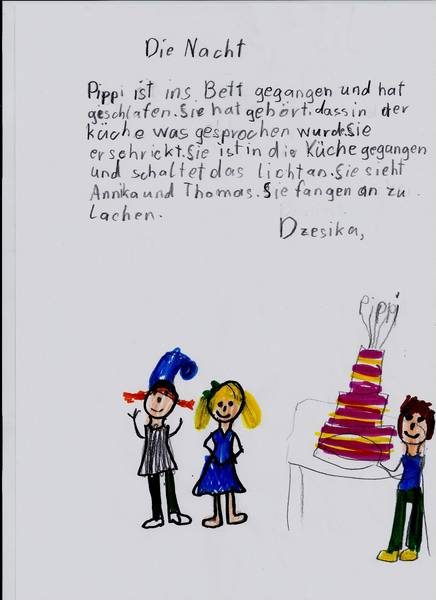 Die Nacht
Pippi ist ins Bett gegangen und hat
geschlafen. Sie hat gehört. dass in der
küche was gesprochen wurde. Sie
erschrickt. Sie ist in die Küche gegangen
und schaltet das licht an. Sie sieht
Annika und Thomas. Sie fangen an zu
lachen.
Dzesika,
Pippi